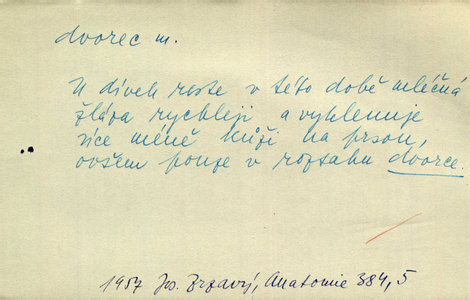 dvorec m.
U dívek roste v této době mléčná
žláza rychleji a vyklenuje
více méně kůži na prsou,
ovšem pouze v rozsahu dvorce.
1957 Jos. Zrzavý, Anatomie 384,5